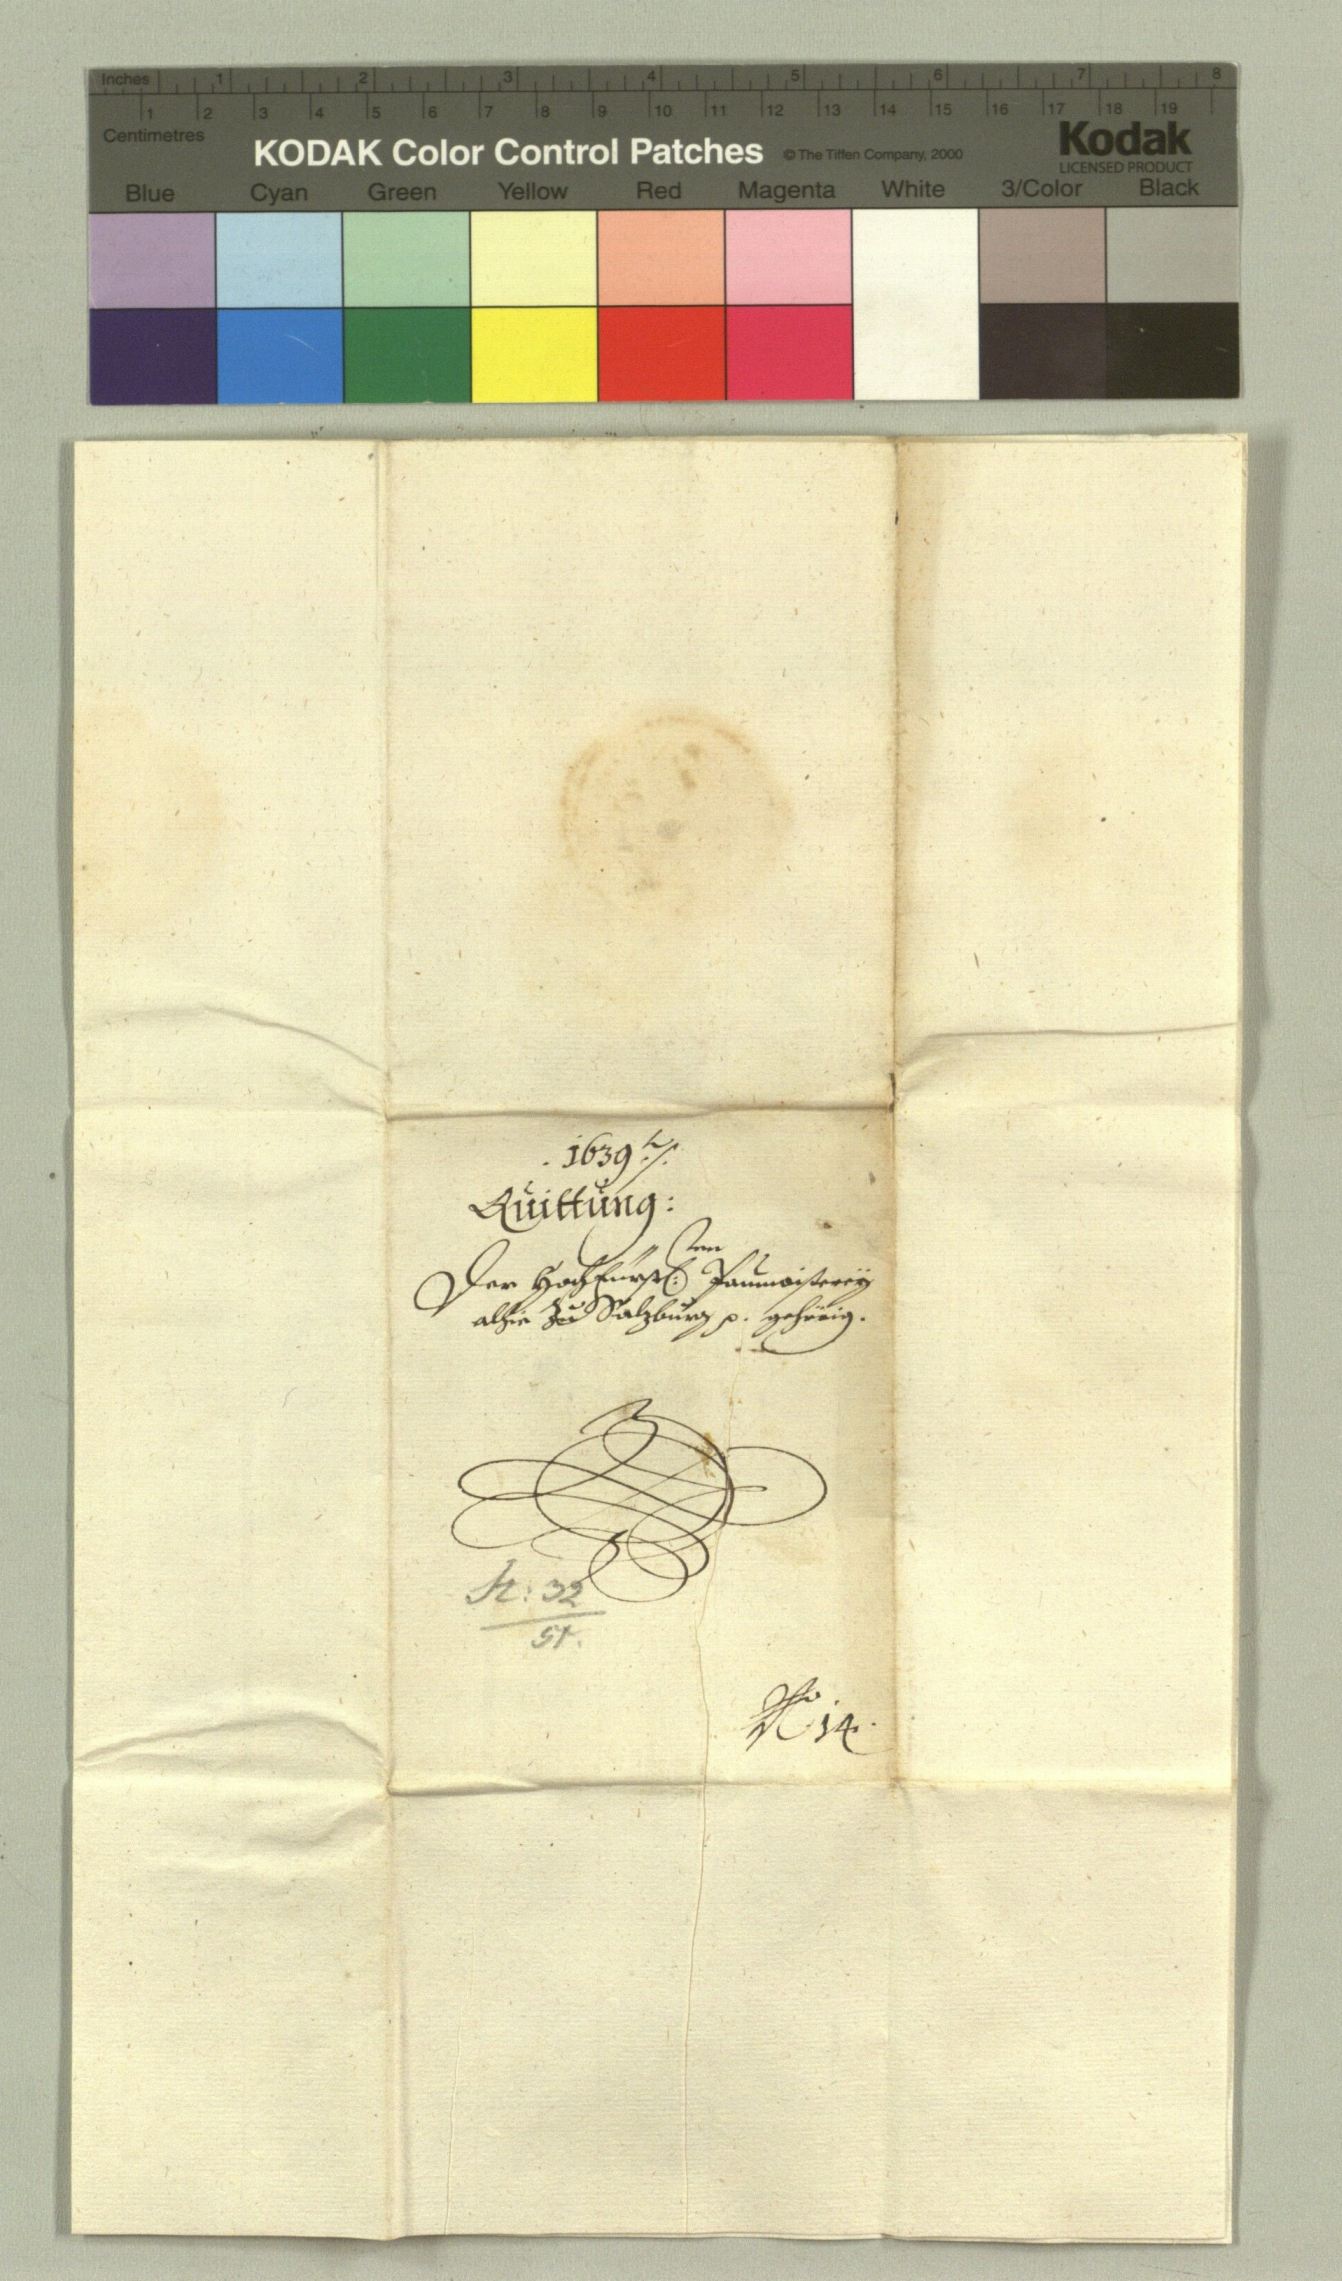 Inches 1 2 3 4 5 6 7 8
1 2 3 4 5 6 7 8 9 10 11 12 13 14 15 16 17 18 19
Centimetres
KODAK Color Control Patches © The Tiffen Company, 2000 Kodak
LICENSED PRODUCT
Blue Cyan Green Yellow Red Magenta White 3/Color Black
1639
Quittung:
Der Hochfürstl: Paumaisterey
alhie zu Salzburg p. gehörig.
32
No 14.